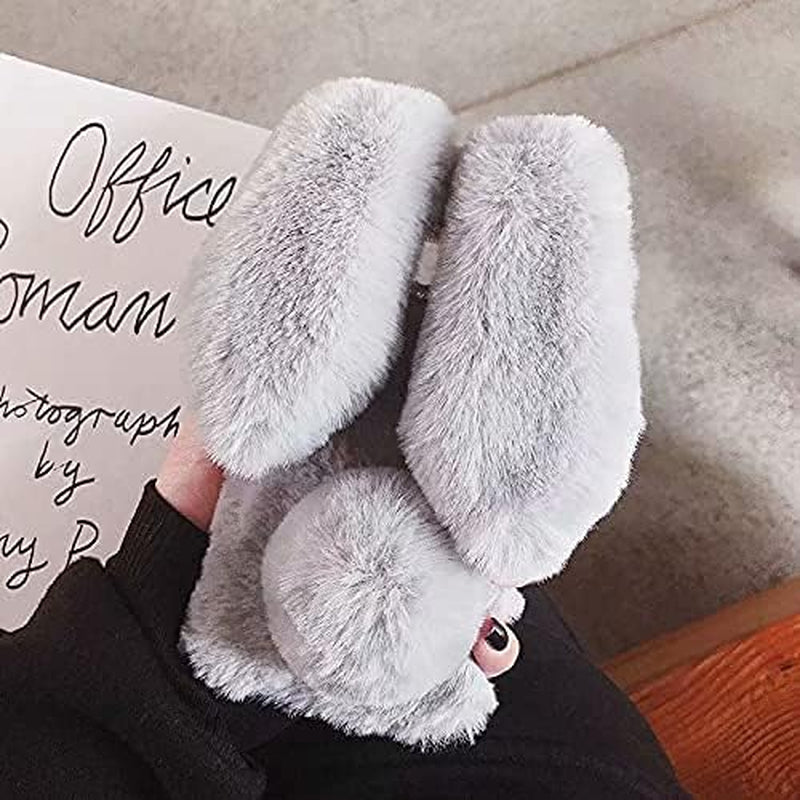 Office
oman
hotograph
by
ny P